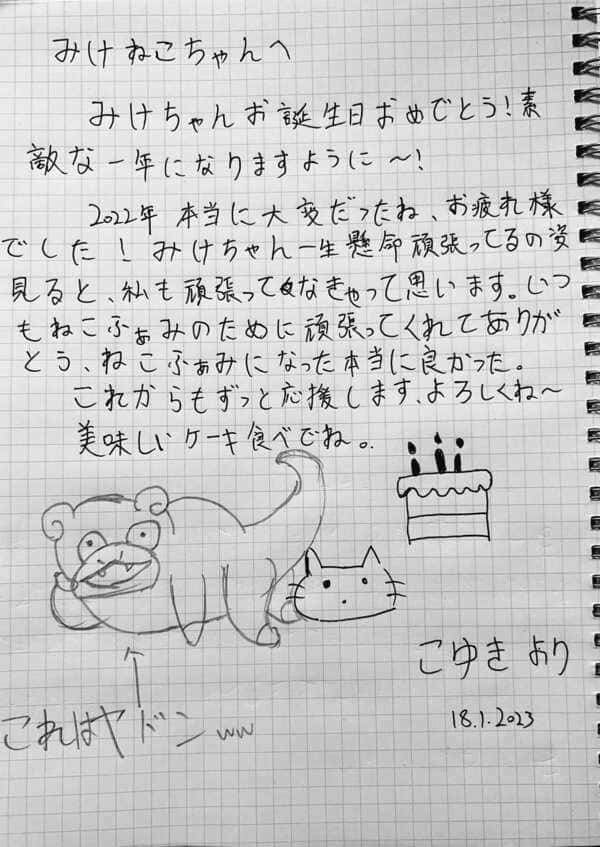 みけねこちゃんへ
みけちゃんお誕生日おめでとう!素
敵な一年になりますように〜!
2022年 本当に大変だったね、お疲れ様
でした!みけちゃん一生懸命頑張ってるの姿
見ると、私も頑張ってなきゃって思います。いつ
もねこふぁみのために頑張ってくれてありが
とう、ねこふぁみになった本当に良かった。
これからもずっと応援します、よろしくね〜
美味しいケーキ食べでね。
こゆきより
18.1.2023
これはヤドンww